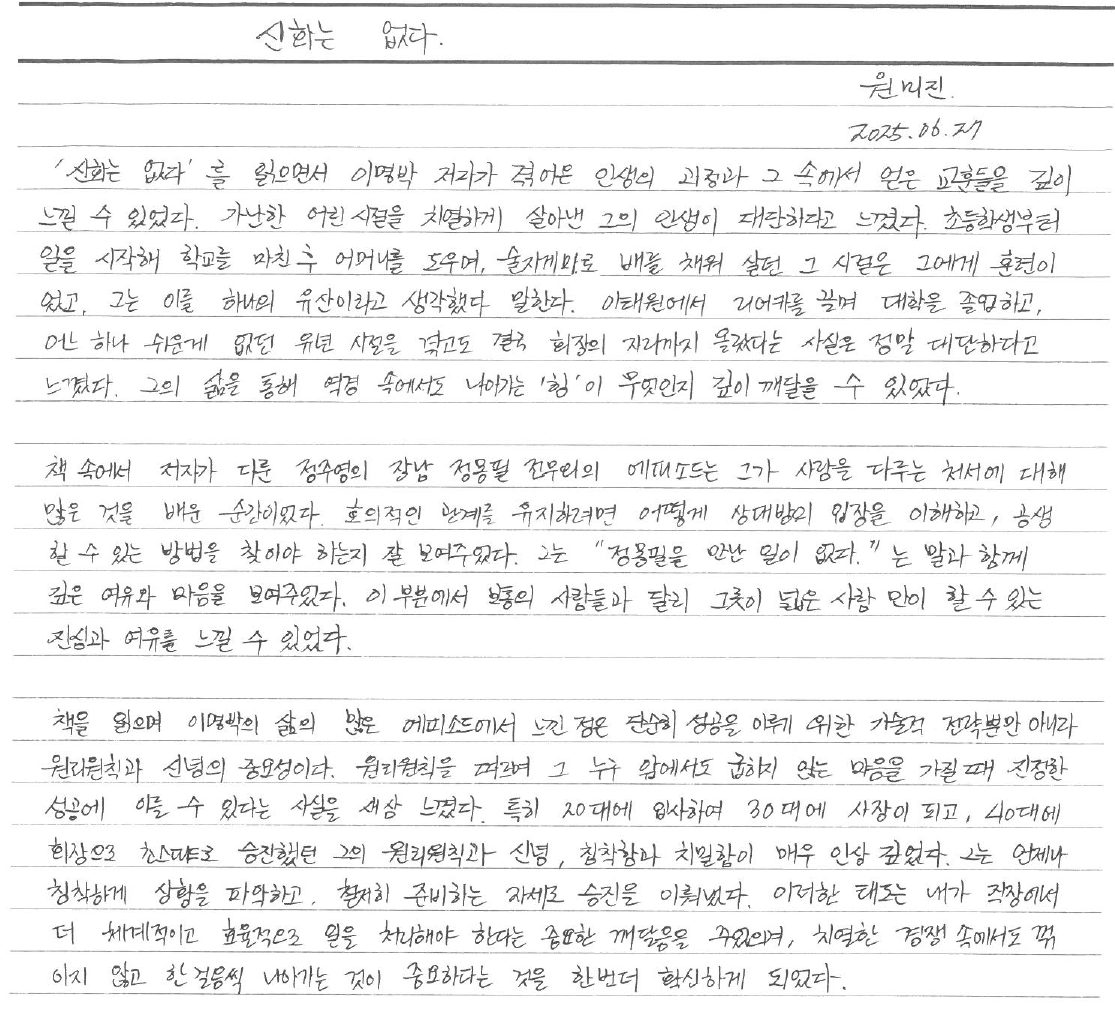 신화는 없다.
원미진.
2025.06.27
'신화는 없다' 를 읽으면서 이명박 저자가 겪어온 인생의 과정과 그 속에서 얻은 교훈들을 깊이
느낄 수 있었다. 가난한 어린시절을 치열하게 살아낸 그의 인생이 대단하다고 느꼈다. 초등학생부터
일을 시작해 학교를 마친 후 어머니를 도우며, 술지게미로 배를 채워 살던 그 시절은 그에게 훈련이
었고, 그는 이를 하나의 유산이라고 생각했다 말한다. 이태원에서 리어카를 끌며 대학을 졸업하고,
어느 하나 쉬운게 없던 유년 시절을 겪고도 결국 회장의 자리까지 올랐다는 사실은 정말 대단하다고
느꼈다. 그의 삶을 통해 역경 속에서도 나아가는 '힘' 이 무엇인지 깊이 깨달을 수 있었다.
책 속에서 저자가 다룬 정주영의 장남 정몽필 전무와의 에피소드는 그가 사람을 다루는 처세에 대해
많은 것을 배운 순간이었다. 호의적인 관계를 유지하려면 어떻게 상대방의 입장을 이해하고, 공생
할 수 있는 방법을 찾아야 하는지 잘 보여주었다. 그는 "정몽필을 만난 일이 없다." 는 말과 함께
깊은 여유와 마음을 보여주었다. 이 부분에서 보통의 사람들과 달리 그릇이 넓은 사람 만이 할 수 있는
진심과 여유를 느낄 수 있었다.
책을 읽으며 이명박의 삶의 많은 에피소드에서 느낀 점은 단순히 성공을 이루기 위한 기술적 전략뿐만 아니라
원리원칙과 신념의 중요성이다. 원리원칙을 따르며 그 누구 앞에서도 굽히지 않는 마음을 가질 때 진정한
성공에 이를 수 있다는 사실을 새삼 느꼈다. 특히 20대에 입사하여 30대에 사장이 되고, 40대에
회장으로 초스피드로 승진했던 그의 원리원칙과 신념, 침착함과 치밀함이 매우 인상 깊었다. 그는 언제나
침착하게 상황을 파악하고, 철저히 준비하는 자세로 승진을 이뤄냈다. 이러한 태도는 내가 직장에서
더 체계적이고 효율적으로 일을 처리해야 한다는 중요한 깨달음을 주었으며, 치열한 경쟁 속에서도 꺾
이지 않고 한걸음씩 나아가는 것이 중요하다는 것을 한번더 확신하게 되었다.